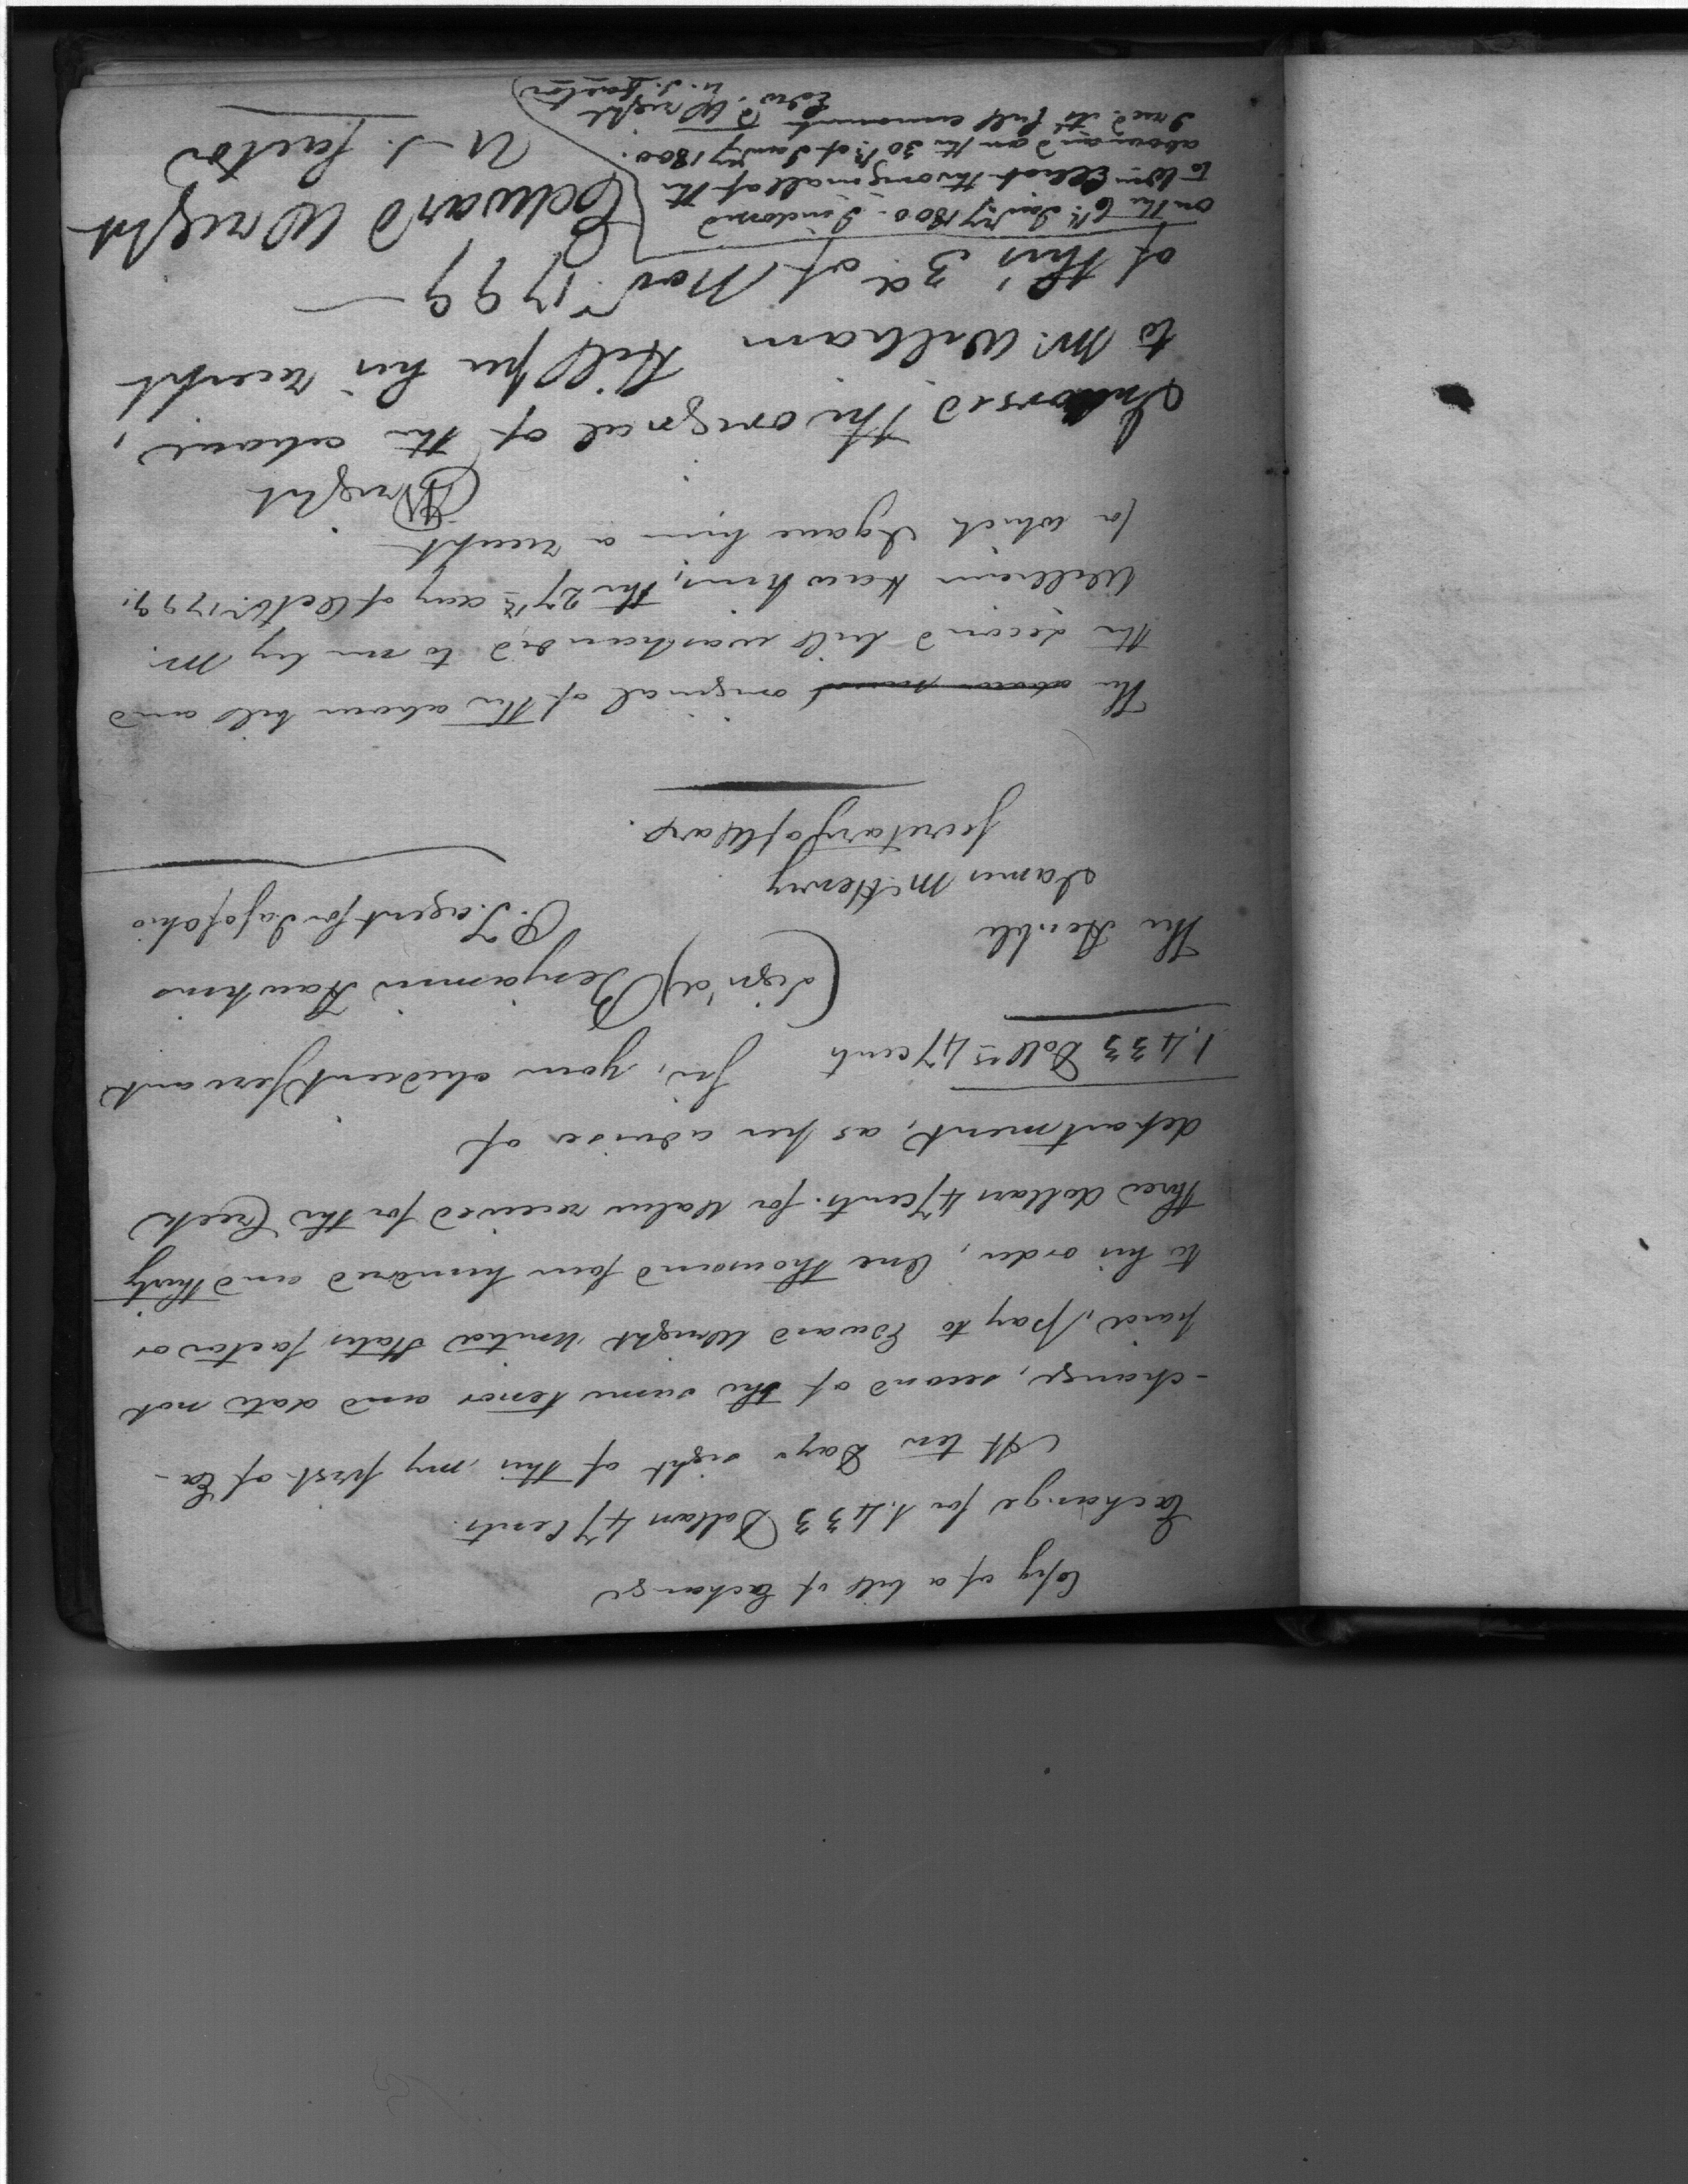 Copy of a bill of Exchange
Exchange for 1.433 Dollars 47 Cents.
At ten Days sight of this my first of Ex-
-change, second of the same tenor and date not
paid, pay to Edward Wright United States factor or
to his order, One thousand four hundred and thirty
three dollars 47 cents. for value received for the Creek
department, as per advise of
1.433 Dollrs 47 cents
Sir, your obedient servant
(Sign'd) Benjamin Hawkins
P. T. agent for I. A. S. of Ohio
The Honble
James McHenry
Secretary of War.
The above original of the above bill and
the second bill was handed to me by Mr.
William Hawkins, the 27th day of Octbr. 1799.
for which I gave him a receipt
Wright
Indorsed the original of the above,
to Mr. William Hill per his receipt
of this 3d of Novr. 1799
Edward Wright
U. S. factor
on the 6th Janry 1800. I indorsed
to Wm Elliot the original of the
above and on the 30th of Janry 1800.
I recd. its full amount
Edwd. Wright
U. S. factor